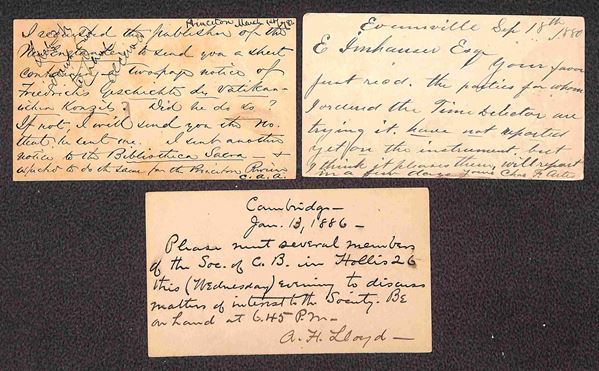 Princeton March
I requested the publisher of the
to send you a sheet
containing a two page notice of
Friedrich's Geschichte des Vatikan-
ischen Konzils? Did he do so?
If not, I will send you the No.
that he sent me. I sent another
notice to the Bibliotheca Sacra &
expect to do the same for the Princeton Review
C. A. A.
Evansville Sep 18th /1880
E Imhauser Esq
Your favor
just rec'd. the parties for whom
I ordered the Time Detector are
trying it. have not reported
yet on the instrument, but
I think it pleases them, will report
in a few days Yours Chas F.
Cambridge—
Jan. 13, 1886—
Please meet several members
of the Soc. of C. B. in Hollis 26
this (Wednesday) evening to discuss
matters of interest to the Society. Be
on hand at 6.45 P.M—
A. H. Lloyd—